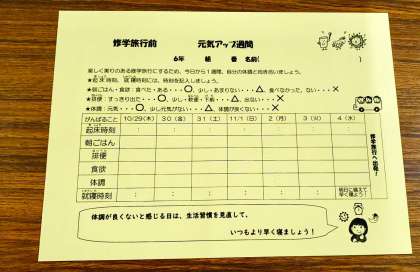 修学旅行前　元気アップ週間
6年　組　番 名前(　)
楽しく実りのある修学旅行にするため、今日から1週間、自分の体調と向き合いましょう。
★起床時刻、就寝時刻には、時刻を記入しましょう。
★朝ごはん・食欲:食べた・ある・・・〇、少し・あまりない・・・△、食べなかった、ない・・・×
★排便:すっきり出た・・・〇、少し・軟便・下痢・・・△、出ない・・・×
★体調:元気・・・〇、少し元気がない・・・△、体調が良くない・・・×
がんばること 10/29(木) 30(金) 31(土) 11/1(日) 2(月) 3(火) 4(水)
起床時刻 : : : : : : :
朝ごはん
排便
食欲
体調
就寝時刻 : : : : : : 明日に備えて早く寝よう!
修学旅行へ出発!
体調が良くないと感じる日は、生活習慣を見直して、
いつもより早く寝ましょう!